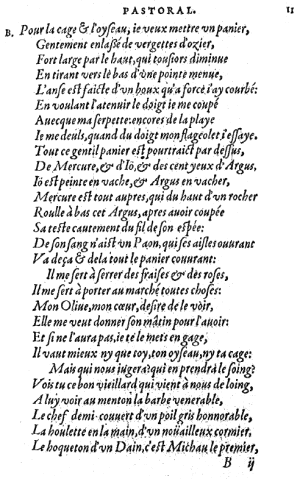 PASTORAL. 11
B. Pour la cage & l'oyseau, ie veux mettre vn panier,
Gentement enlaßé de vergettes d'ozier,
Fort large par le haut, qui tousiors diminue
En tirant vers le bas d'vne pointe menue,
L'anse est faicte d'vn houx qu'a force i'ay courbé:
En voulant l'atenuir le doigt ie me coupé
Auecque ma serpette: encores de la playe
Ie me deuls, quand du doigt mon flageolet i'essaye.
Tout ce gentil panier est pourtraict par dessus,
De Mercure, & d'Iô, & des cent yeux d'Argus,
Iô est peinte en vache, & Argus en vacher,
Mercure est tout aupres, qui du haut d'vn rocher
Roulle à bas cet Argus, apres auoir coupée
Sa teste cautement du fil de son espée:
De son sang naist vn Paon, qui ses aisles ouurant
Va deça & dela tout le panier couurant:
Il me sert à serrer des fraises & des roses,
Il me sert à porter au marché toutes choses:
Mon Oliue, mon cœur, desire de le voir,
Elle me veut donner son mâtin pour l'auoir:
Et si ne l'aura pas, ie te le mets en gage,
Il vaut mieux ny que toy, ton oyseau, ny ta cage:
Mais qui nous iugera? qui en prendra le soing?
Vois tu ce bon vieillard qui vient à nous de loing,
A luy voir au menton la barbe venerable,
Le chef demi-couuert d'vn poil gris honnorable,
La houlette en la main, d'vn noüailleux cormier,
Le hoqueton d'vn Dain, c'est Michau le premier,
B ij